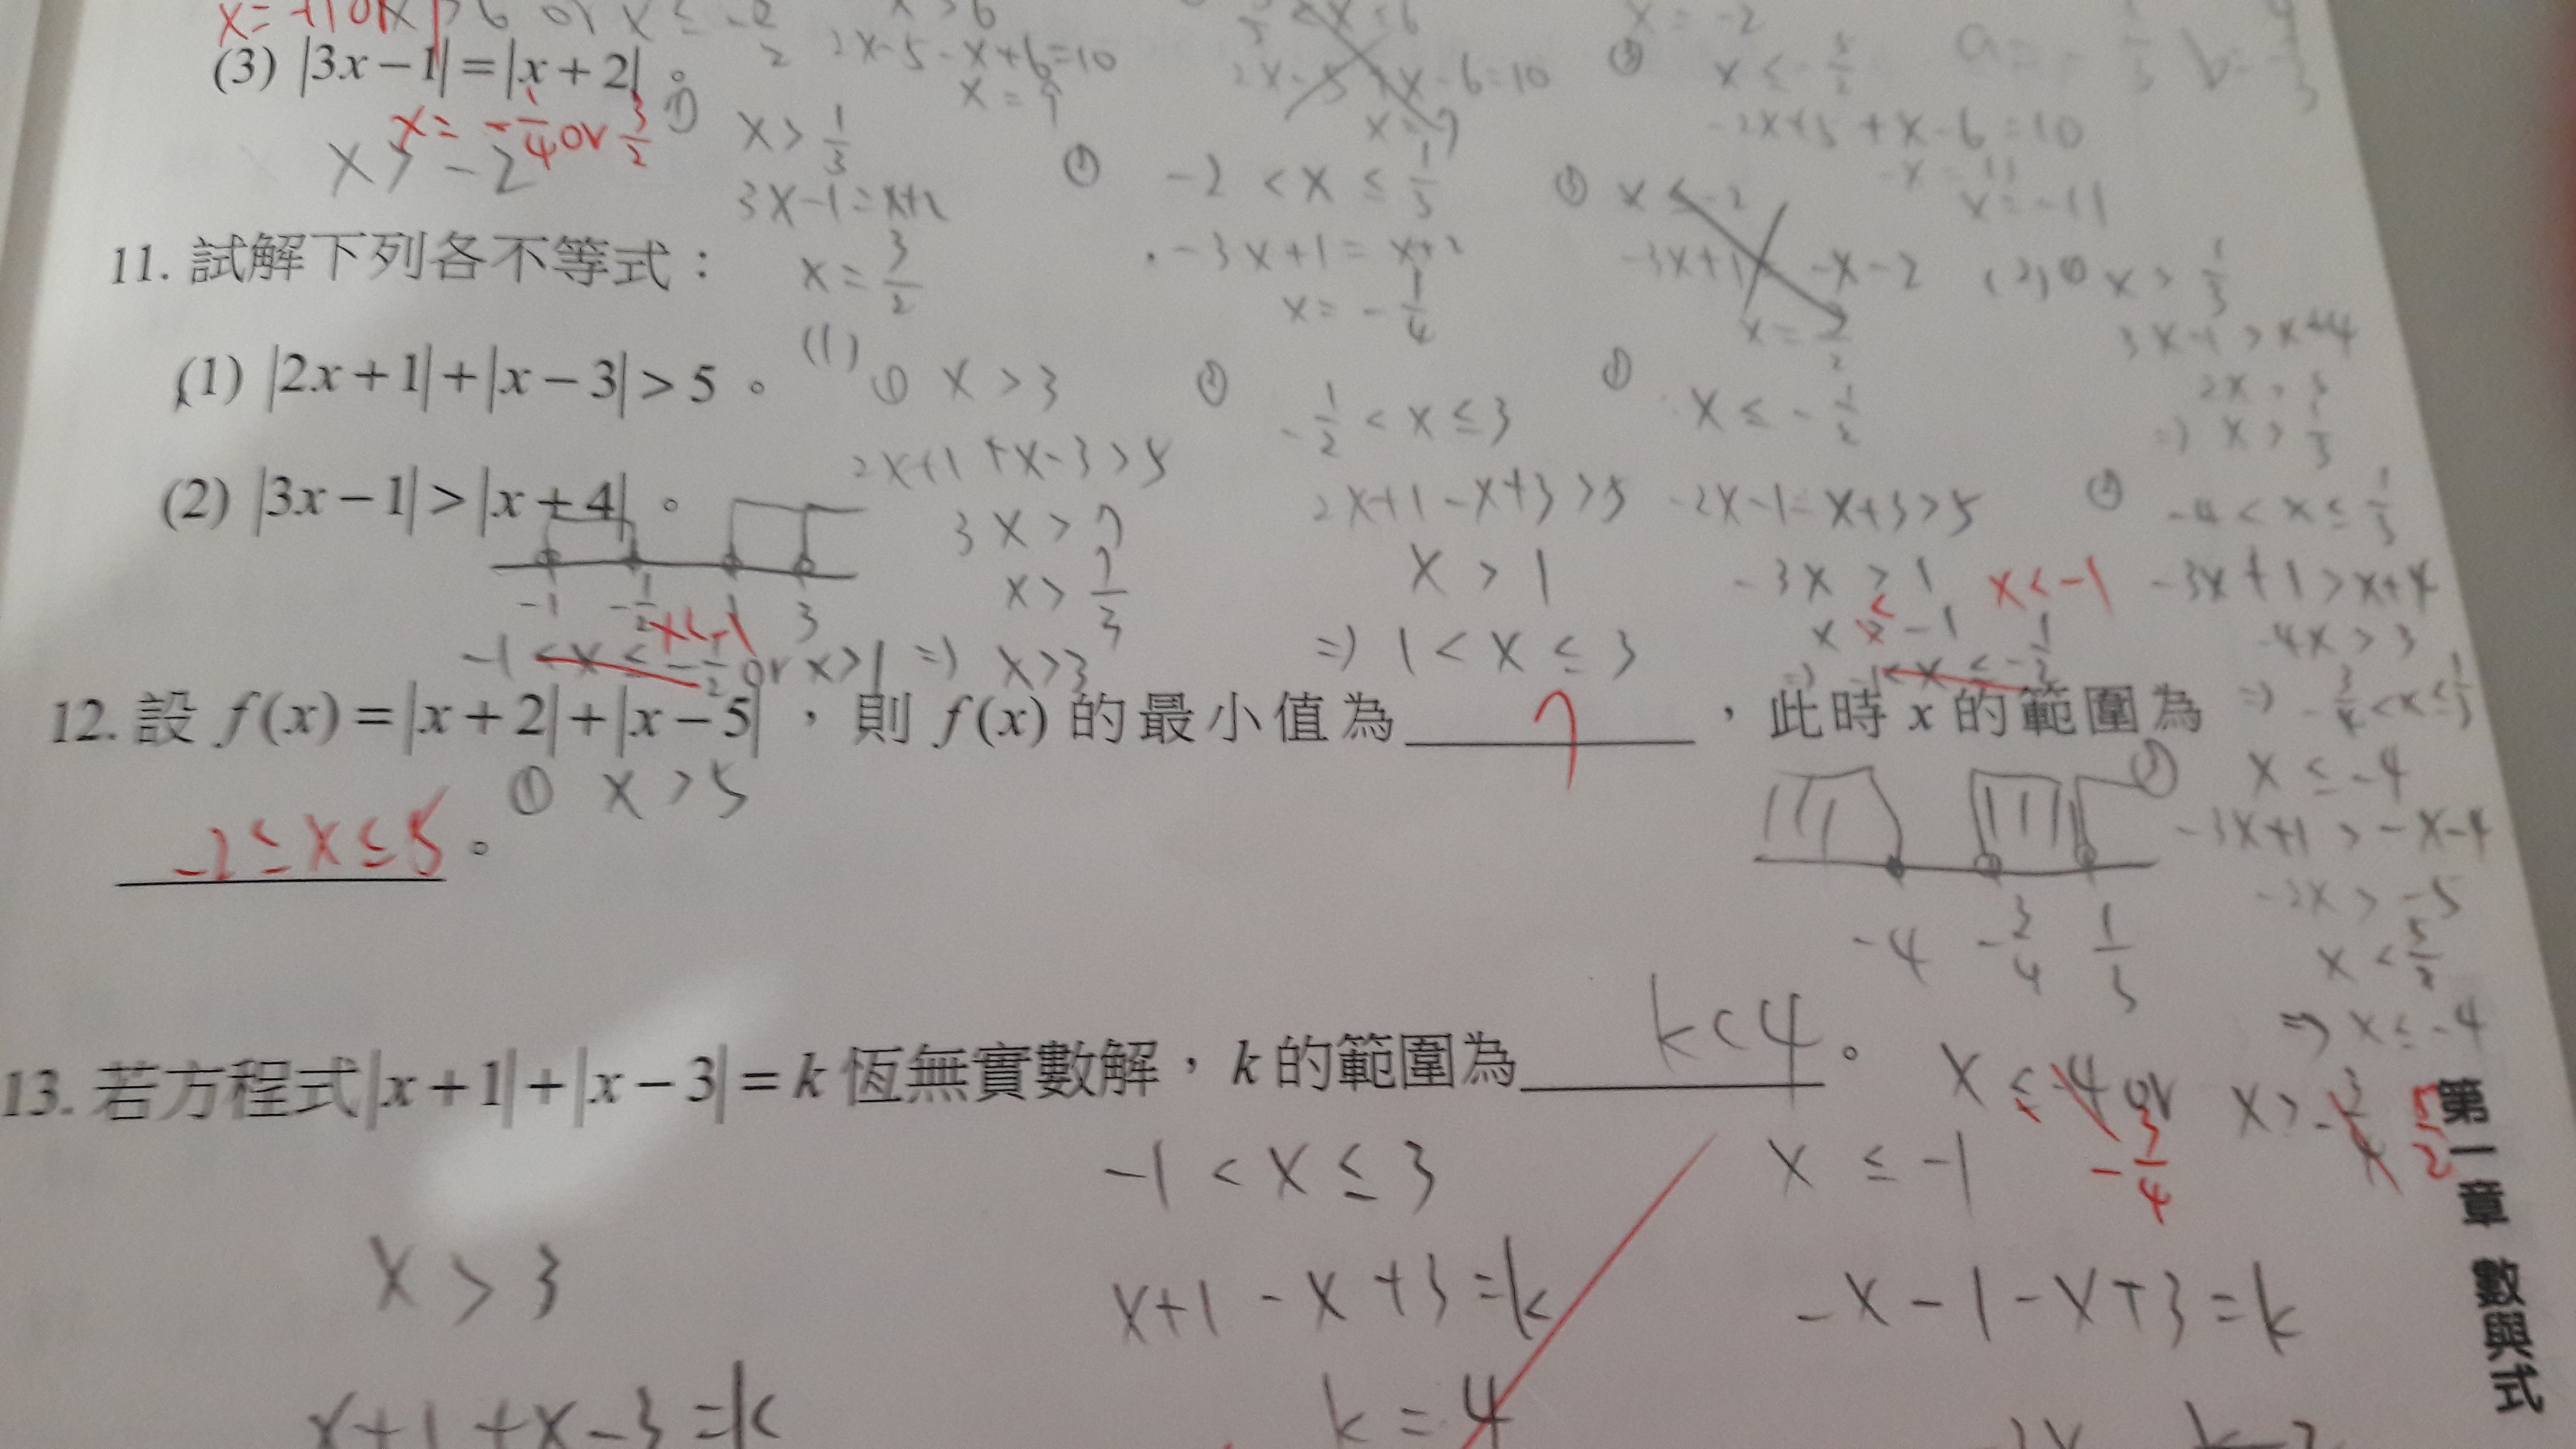 x > 6 or x ≤ -2
(3) |3x-1|=|x+2|。
x= -1/4 or 3/2
x > -2
2x-5-x+6=10
x=9
2x-5+x-6=10
x=7
x=-2
-2x+5+x-6=10
x=-11
① x > 1/3
3x-1=x+2
x=3/2
-2 < x ≤ 1/3
-3x+1=x+2
x=-1/4
x ≤ -2
-3x+1 -x-2
11. 試解下列各不等式：
(1) |2x+1|+|x-3|>5。
(1) ① x > 3
2x+1+x-3>5
3x > 7
x > 7/3
=) x>3
-1/2 < x ≤ 3
2x+1-x+3>5
x > 1
=) 1 < x ≤ 3
x ≤ -1/2
-2x-1-x+3>5
-3x > 1
x < -1
x<-1
(2) |3x-1|>|x+4|。
-1 -1/2 1 3
x<-1
-1 < x ≤ -1/2 or x>1
(2) ① x > 1/3
3x-1 > x+4
-4 < x ≤ 1/3
-3x+1>x+4
-4x > 3
=) -3/4 < x ≤ 1/3
x ≤ -4
-3x+1 > -x-4
-2x > -5
x < 5/2
=> x ≤ -4
-4 -3/4 1/3
x ≤ -4 or x > -3/4
-3/4 5/2
12. 設 f(x)=|x+2|+|x-5|，則 f(x) 的最小值為 7 ，此時 x 的範圍為
① x > 5
-2≤x≤5。
13. 若方程式|x+1|+|x-3|=k 恆無實數解，k 的範圍為 k<4。
x > 3
x+1+x-3=k
-1 < x ≤ 3
x+1-x+3=k
k=4
x ≤ -1
-x-1-x+3=k
第一章 數與式